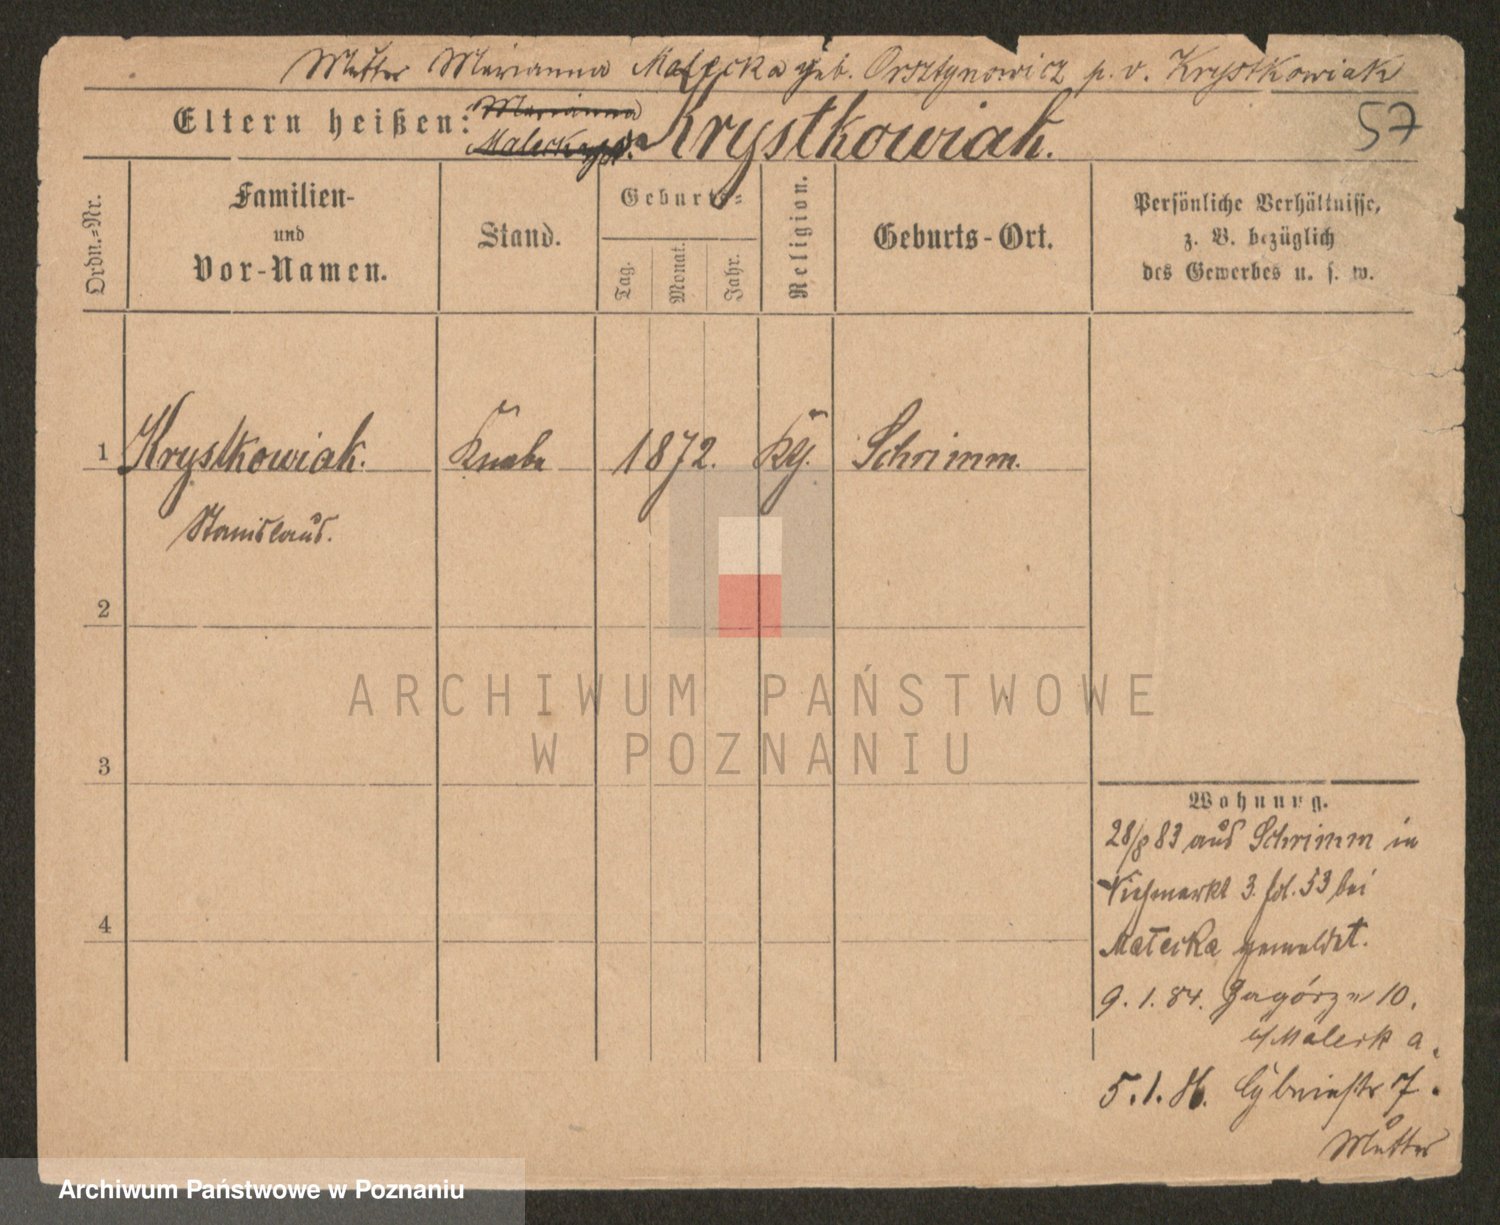 Mutter Marianna Małecka geb. Orsztynowicz p. v. Krystkowiak
57
Eltern heißen: Marianna Małecka Krystkowiak.
Ordn.-Nr.
Familien- und Vor-Namen.
Stand.
Geburts-
Tag.
Monat.
Jahr.
Religion.
Geburts-Ort.
Persönliche Verhältnisse,
z. B. bezüglich
des Gewerbes u. s. w.
1 Krystkowiak. Knabe 1872. kg. Schrimm.
Stanislaus.
2
3
4
Wohnung.
28/8 83 aus Schrimm in
Viehmarkt 3. fol. 53 bei
Małecka gemeldet.
9. 1. 84. Zagórze 10.
b/Małecka.
5. 1. 86. Cybinastr 7.
Mutter
ARCHIWUM PAŃSTWOWE
W POZNANIU
Archiwum Państwowe w Poznaniu